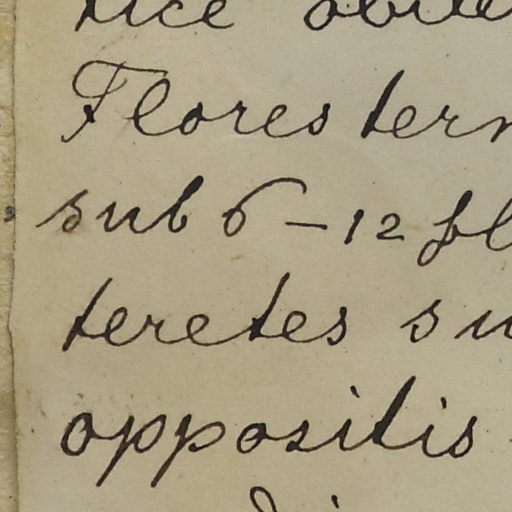 Flores tern
sub 6-12 fl
teretes su
oppositis